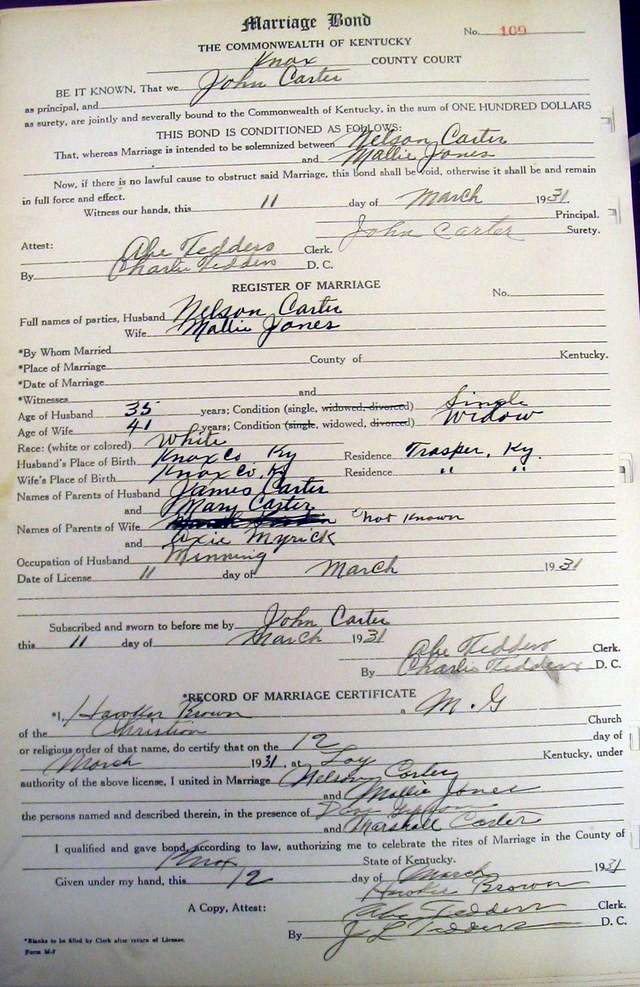 Marriage Bond
No. 109
THE COMMONWEALTH OF KENTUCKY
Knox COUNTY COURT
BE IT KNOWN, That we John Carter
as principal, and
as surety, are jointly and severally bound to the Commonwealth of Kentucky, in the sum of ONE HUNDRED DOLLARS
THIS BOND IS CONDITIONED AS FOLLOWS:
That, whereas Marriage is intended to be solemnized between Nelson Carter
and Mallie Jones
Now, if there is no lawful cause to obstruct said Marriage, this Bond shall be void, otherwise it shall be and remain
in full force and effect.
Witness our hands, this 11 day of March 1931
Principal.
John Carter Surety.
Attest: Abe Tedders Clerk.
By Charlie Tedders D. C.
REGISTER OF MARRIAGE
No.
Full names of parties, Husband Nelson Carter
Wife Mallie Jones
*By Whom Married
*Place of Marriage County of Kentucky.
*Date of Marriage
*Witnesses and
Age of Husband 35 years; Condition (single, widowed, divorced) Single
Age of Wife 41 years; Condition (single, widowed, divorced) Widow
Race: (white or colored) White
Husband's Place of Birth Knox Co, Ky Residence Trosper, Ky.
Wife's Place of Birth Knox Co, Ky Residence " "
Names of Parents of Husband James Carter
and Mary Carter
Names of Parents of Wife Not Known
and Myrick
Occupation of Husband Minning
Date of License 11 day of March 1931
Subscribed and sworn to before me by John Carter
this 11 day of March 1931
Abe Tedders Clerk.
By Charlie Tedders D. C.
*RECORD OF MARRIAGE CERTIFICATE
*I, Hawker Brown a M. G
of the Christion Church
or religious order of that name, do certify that on the 12 day of
March 1931, at Loy Kentucky, under
authority of the above license, I united in Marriage Nelson Carter
and Mallie Jones
the persons named and described therein, in the presence of
and Marshall Carter
I qualified and gave bond, according to law, authorizing me to celebrate the rites of Marriage in the County of
Knox State of Kentucky.
Given under my hand, this 12 day of March 1931
Hawker Brown
A Copy, Attest: Abe Tedders Clerk.
By J L Tedders D. C.
*Blanks to be filled by Clerk after return of License.
Form M-F